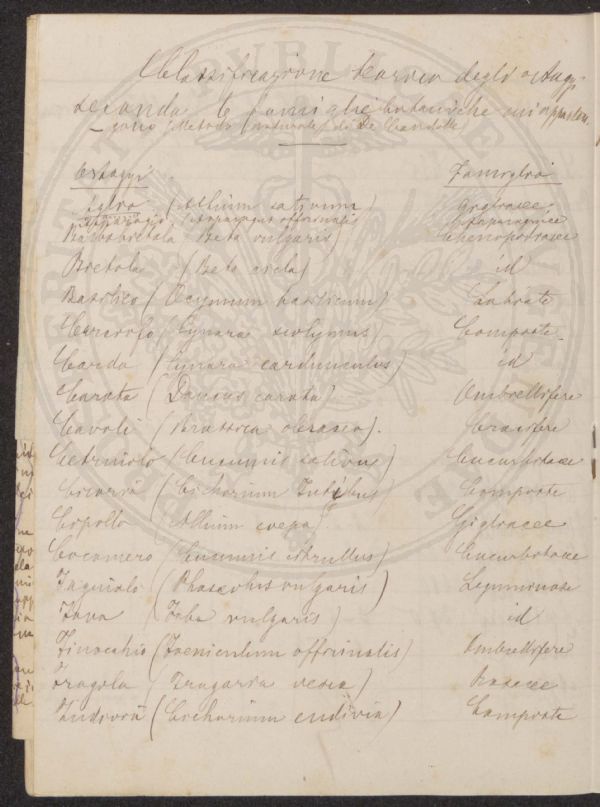 Classificazione degli ortaggi
secondo le famiglie botaniche cui apparten-
gono (Metodo naturale) di De Candolle
Ortaggi Famiglia
Aglio (Allium sativum) Gigliacee
Asparagio (Asparagus officinalis) Asparaginee
Barbabietola Beta vulgaris) Chenopodiacee
Bietola (Beta cicla) id
Basilico (Ocymum basilicum) Labiate
Carciofo (Cynara scolymus) Composte
Cardo (Cynara cardunculus) id
Carota (Daucus carota) Ombrellifere
Cavoli (Brassica oleracea). Crocifere
Cetriuolo (Cucumis sativus) Cucurbitacee
Cicoria (Cichorium Intibus) Composte
Cipolla (Allium coepa) Gigliacee
Cocomero (Cucumis citrullus) Cucurbitacee
Fagiuolo (Phaseolus vulgaris) Leguminose
Fava (Faba vulgaris) id
Finocchio (Foeniculum officinalis) Ombrellifere
Fragola (Fragaria vesca) Rosacee
Indivia (Cichorium endivia) Composte